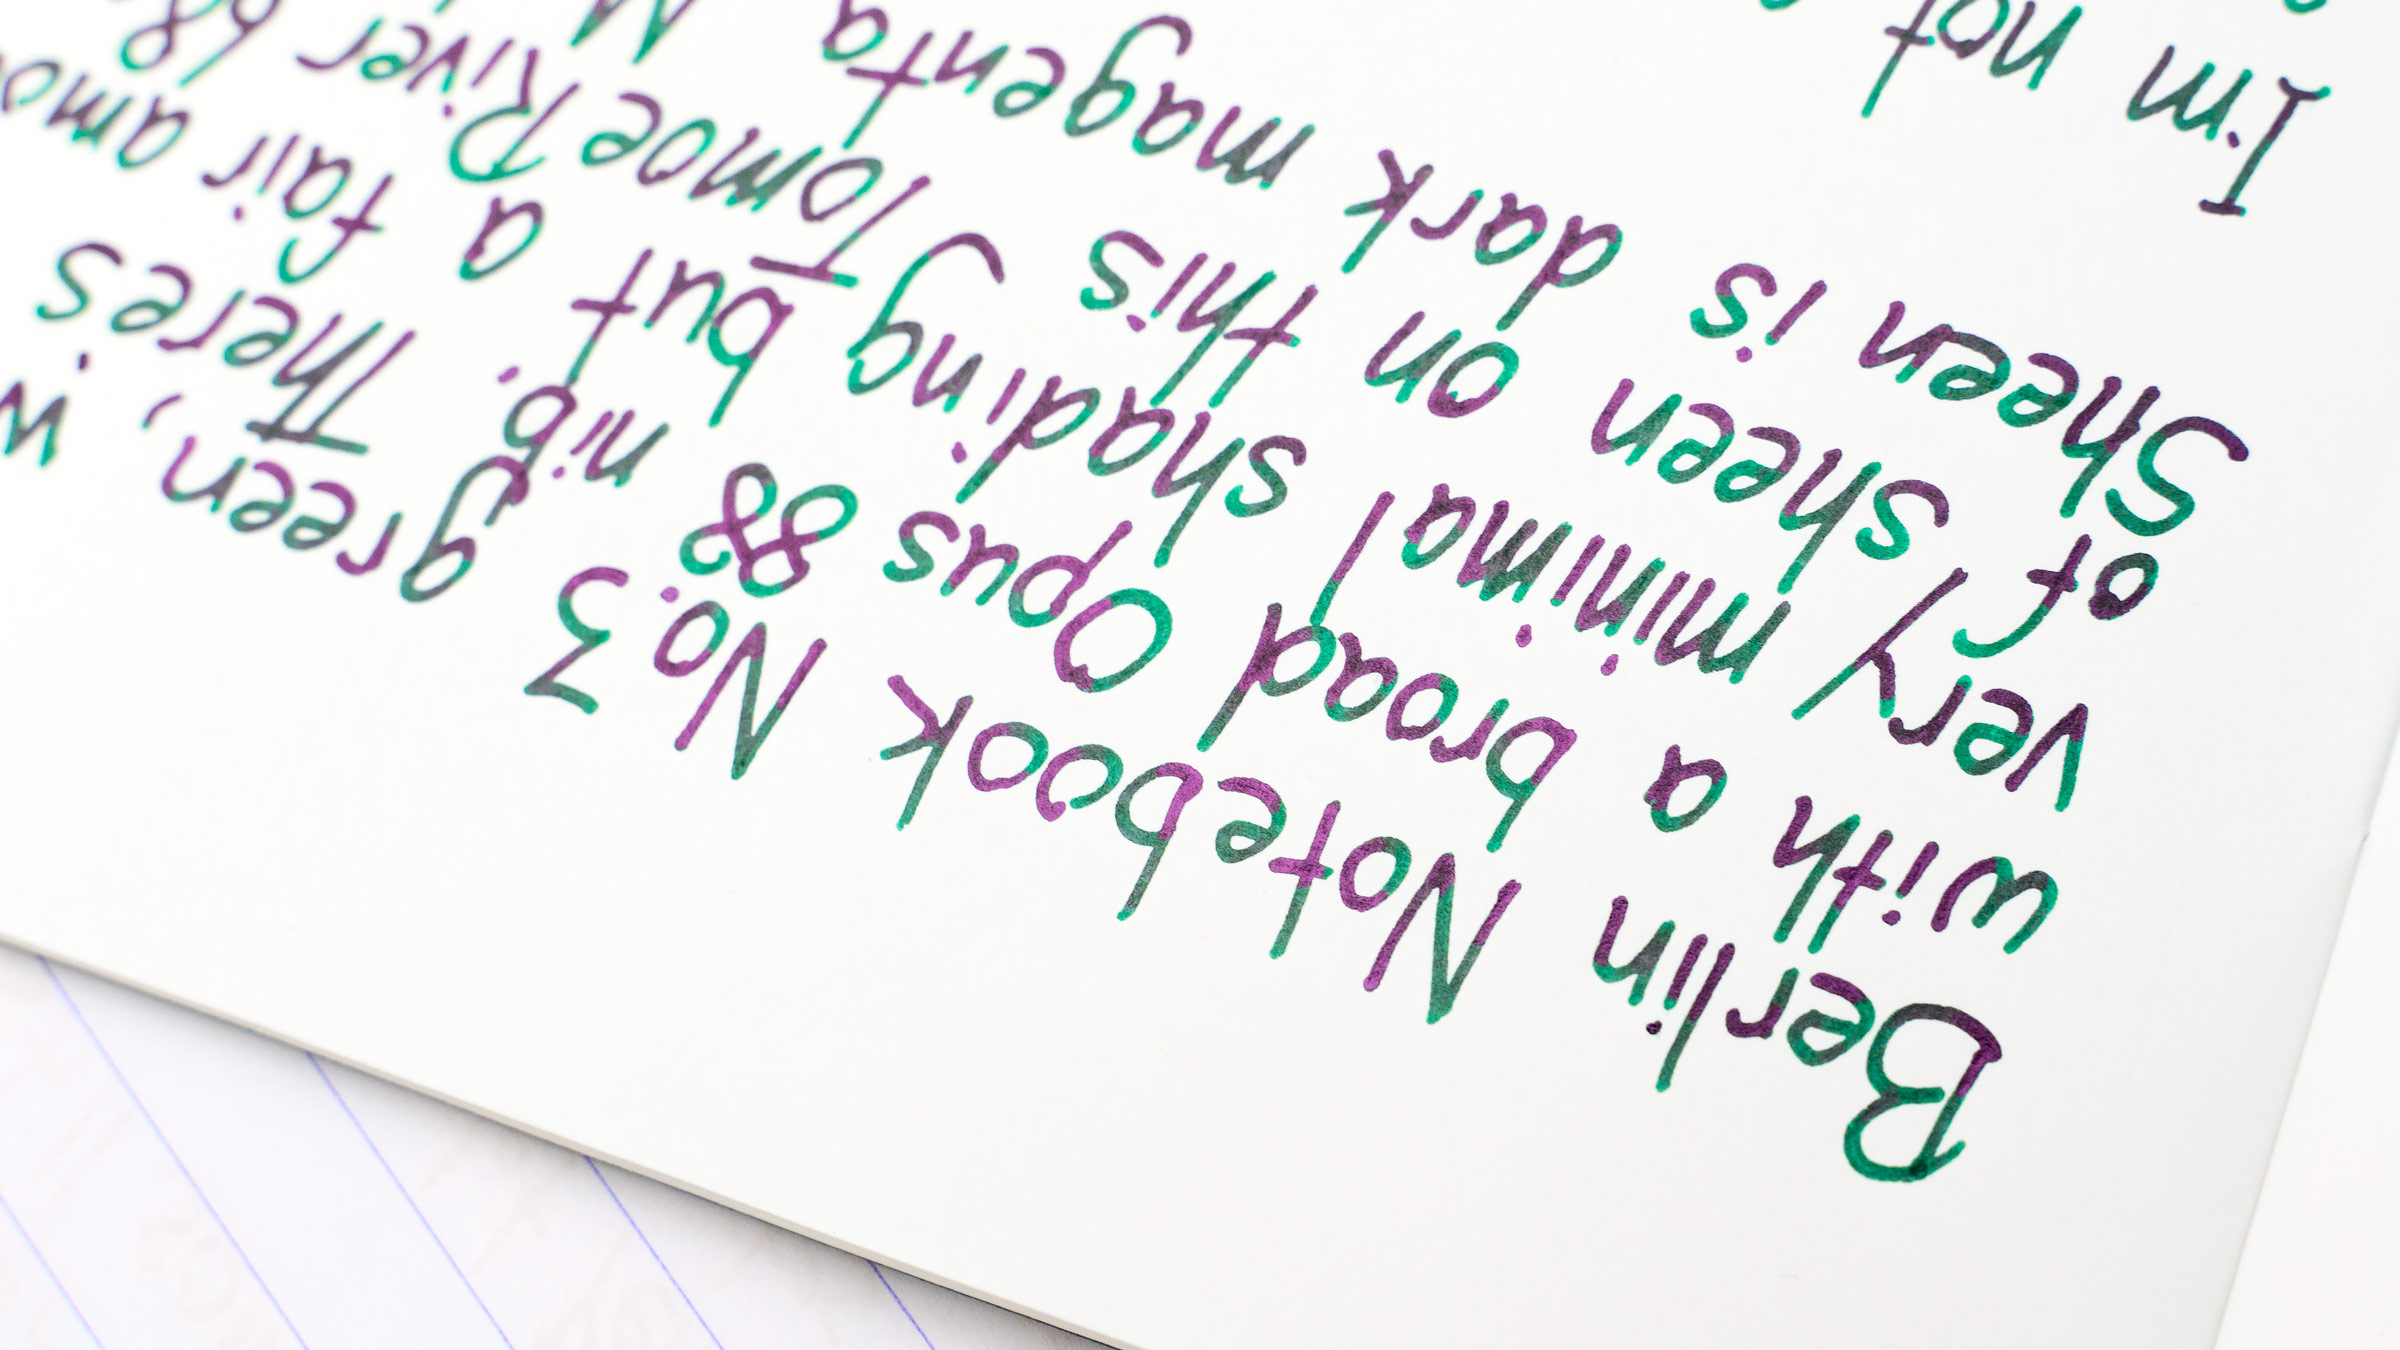 Berlin Notebook No.3 green, w
with a broad Opus 88 nib. Theres
very minimal shading but a fair amo
of sheen on this Tomoe River 68
Sheen is dark magenta
I'm not